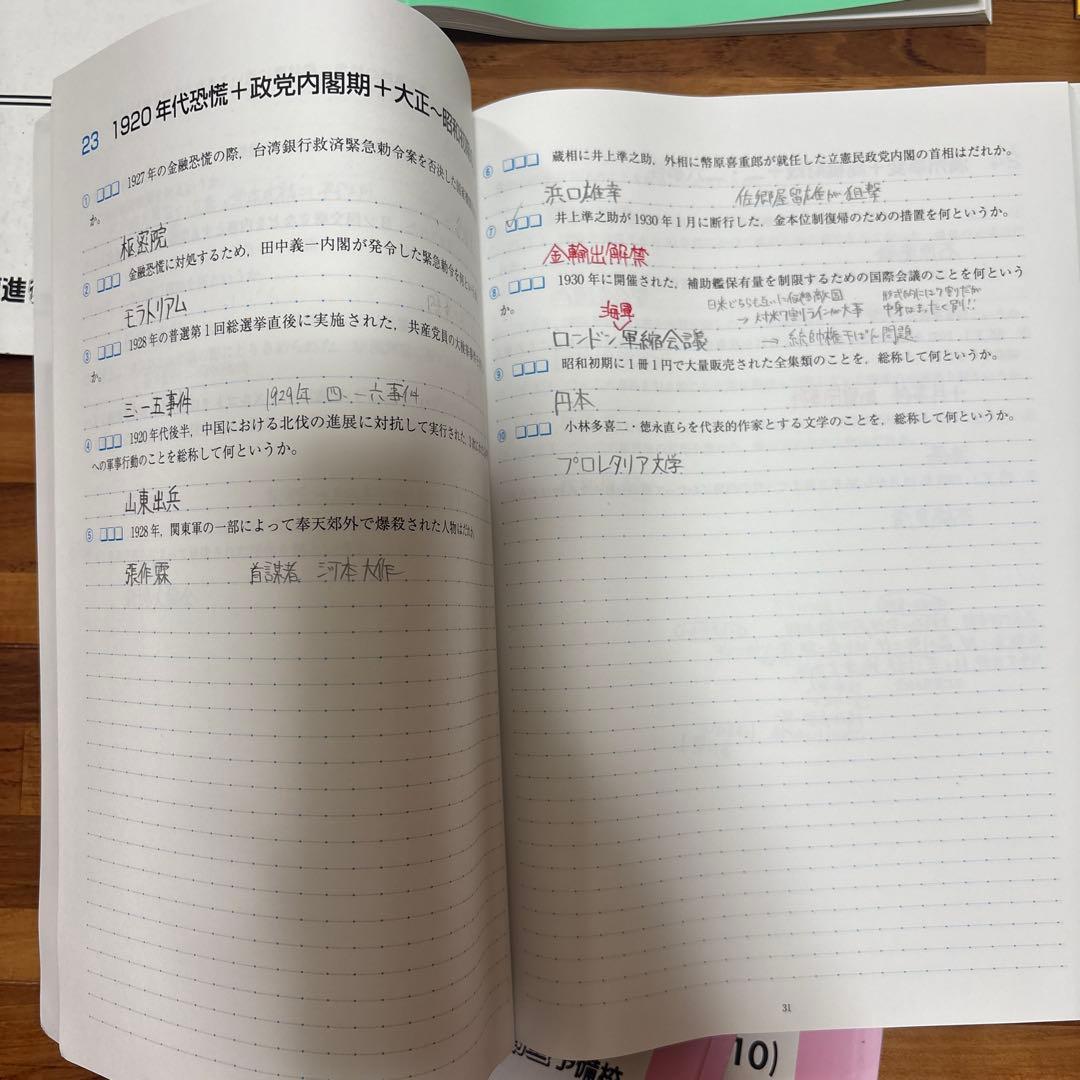 23 1920年代恐慌＋政党内閣期＋大正～昭和初期
① 1927年の金融恐慌の際，台湾銀行救済緊急勅令案を否決した
か。
枢密院
② 金融恐慌に対処するため，田中義一内閣が発令した緊急勅令を
モラトリアム
③ 1928年の普選第1回総選挙直後に実施された，共産党員の大検挙
か。
三・一五事件 1929年 四・一六事件
④ 1920年代後半，中国における北伐の進展に対抗して実行された，
への軍事行動のことを総称して何というか。
山東出兵
⑤ 1928年，関東軍の一部によって奉天郊外で爆殺された人物はだれか
張作霖 首謀者 河本大作
⑥ 蔵相に井上準之助，外相に幣原喜重郎が就任した立憲民政党内閣の首相はだれか。
浜口雄幸 佐郷屋留雄が狙撃
⑦ 井上準之助が1930年1月に断行した，金本位制復帰のための措置を何というか。
金輸出解禁
⑧ 1930年に開催された，補助艦保有量を制限するための国際会議のことを何という
か。
海軍
日米どちらも互いに仮想敵国
→対米7割ラインが大事
形式的には7割だが
中身はまったく別!!
ロンドン軍縮会議 → 統帥権干ぱん問題
⑨ 昭和初期に1冊1円で大量販売された全集類のことを，総称して何というか。
円本
⑩ 小林多喜二・徳永直らを代表的作家とする文学のことを，総称して何というか。
プロレタリア文学
31
予備校
10)